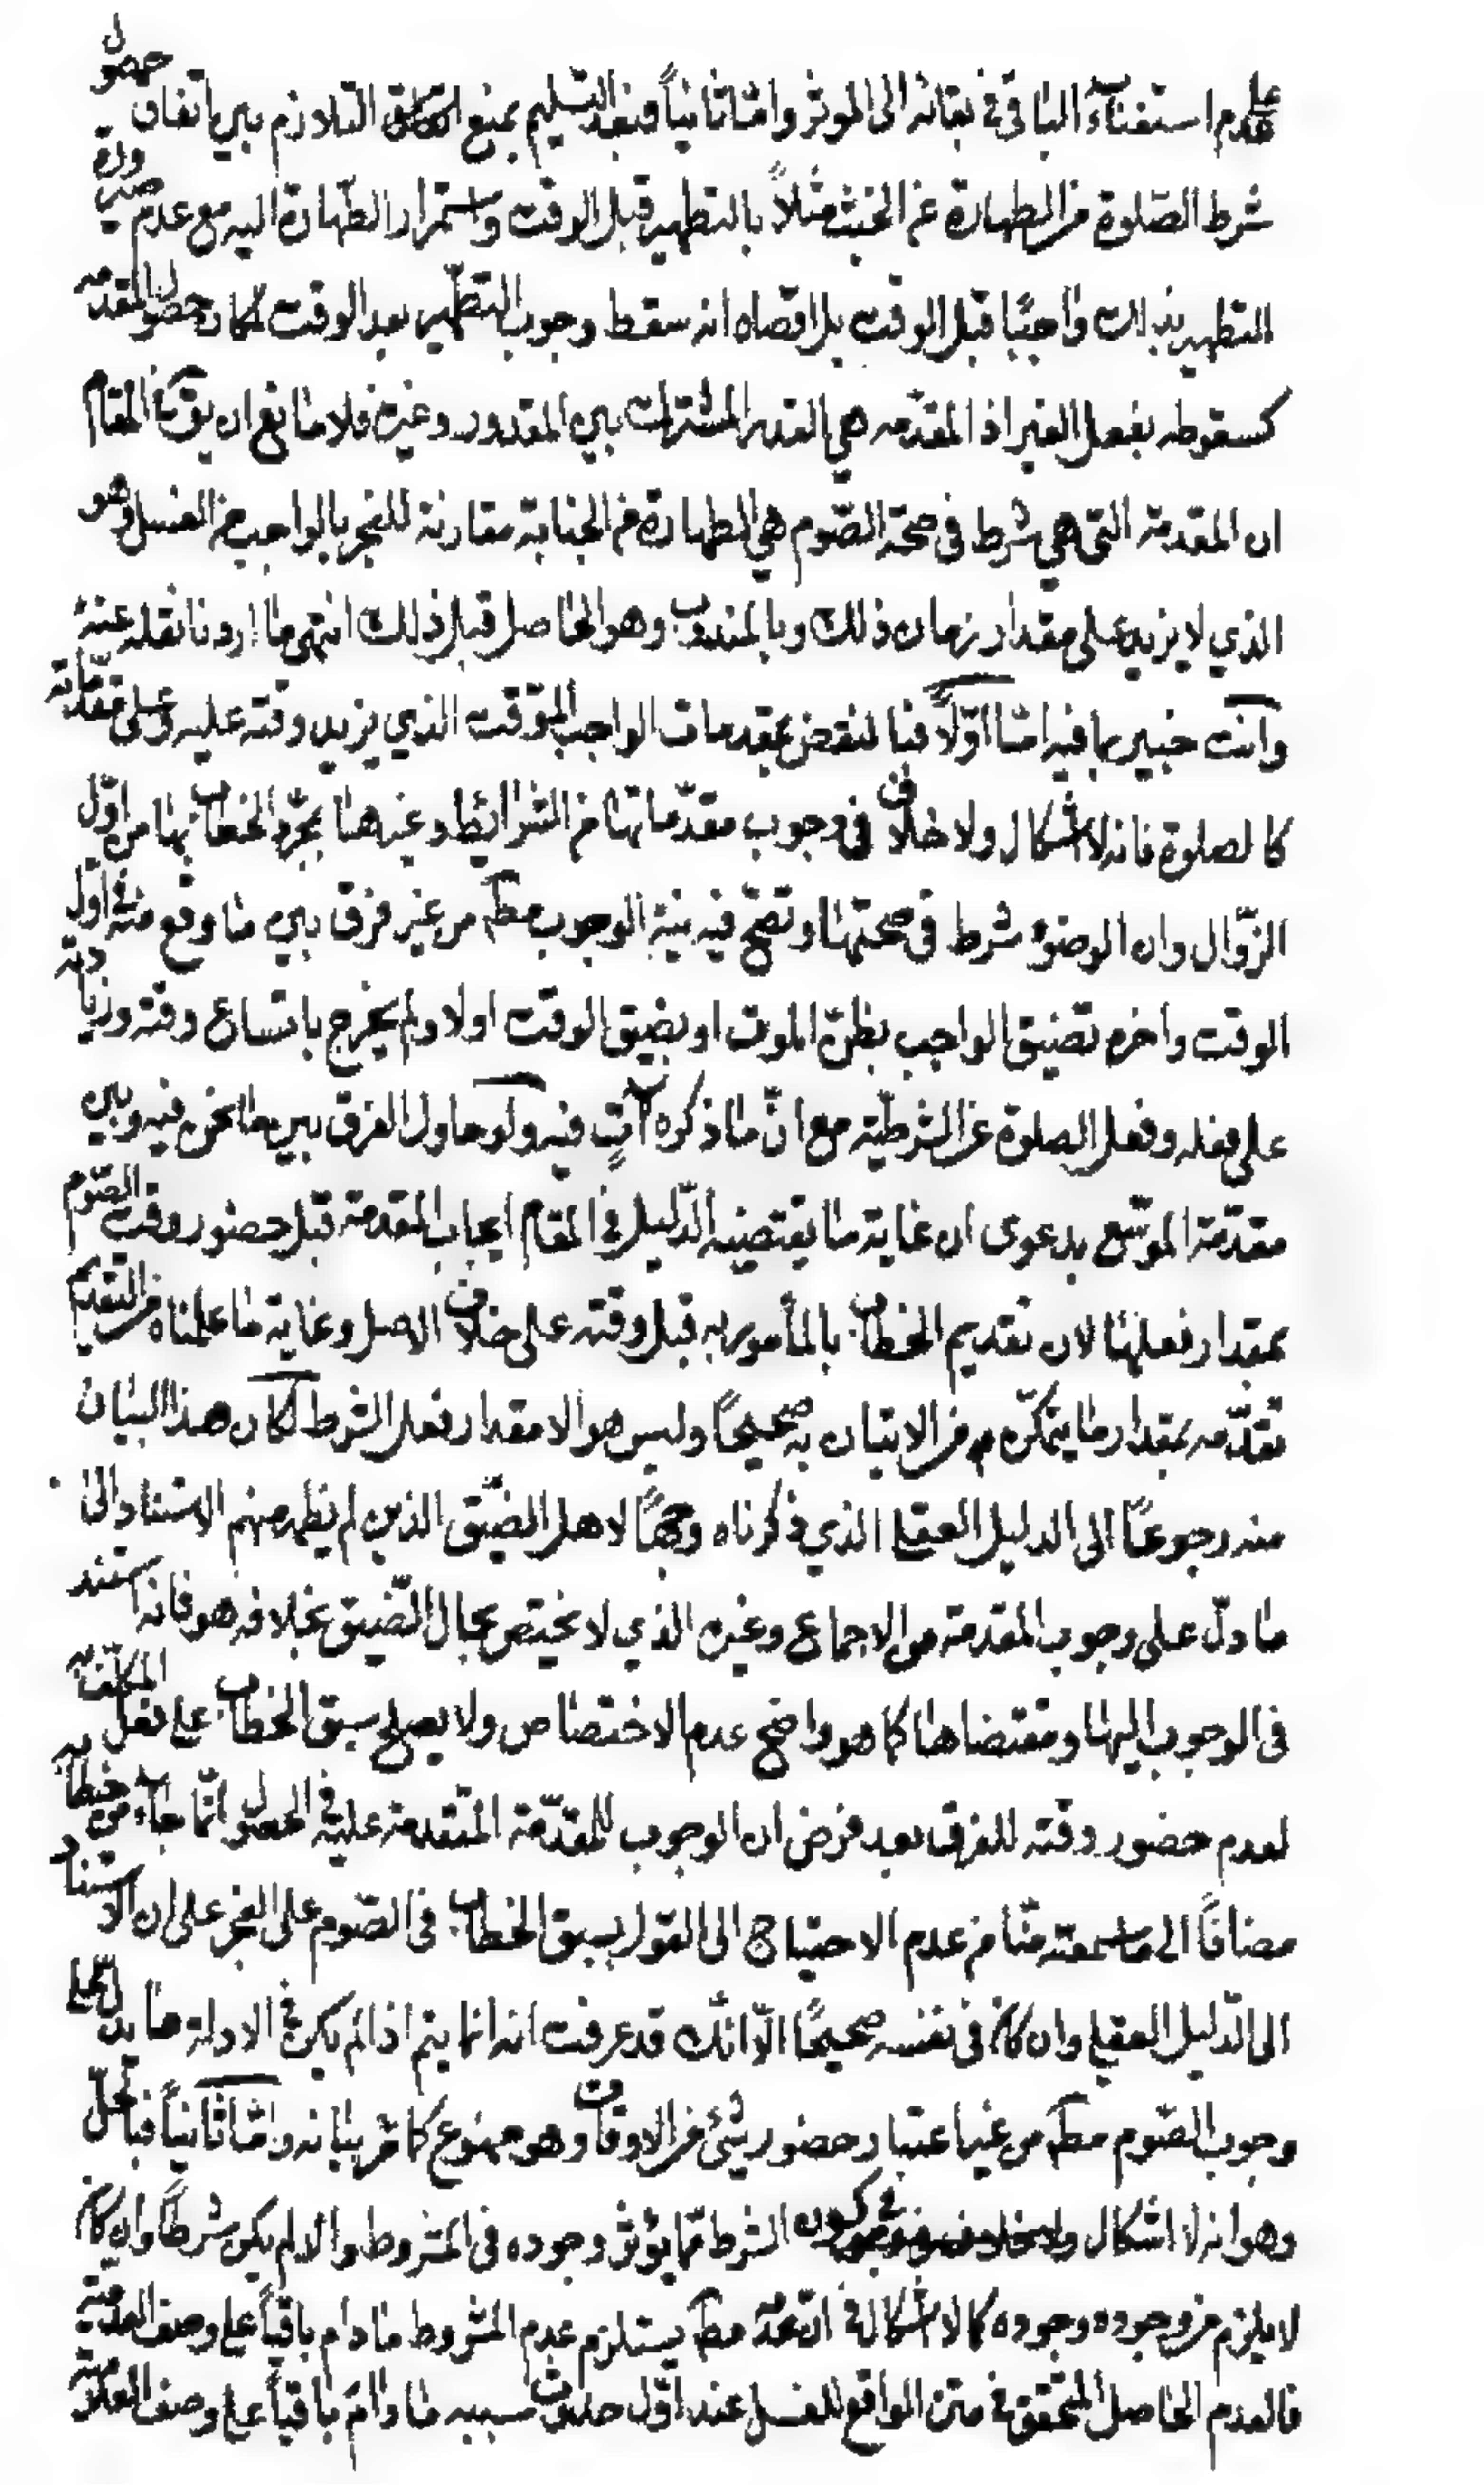 على عدم استغناء الباقى فى بقائه الى الموثر واما ثانياً فبعد التسليم بمنع التلازم بين اتفاق حصول
شرط الصلوة من الطهارة عن الخبث مثلاً بالتطهير قبل الوقت واستمرار الطهارة اليه مع عدم صيرورة
التطهير بذلك واجبًا قبل الوقت بل اقصاه انه سقط وجوب التطهير بعد الوقت لمكان حصول المقدمه
كسقوطه بفعل الغير اذ المقدمه هي القدر المشترك بين المقدور وغيره فلا مانع ان يق في المقام
ان المقدمة التى هي شرط فى صحة الصوم هي الطهارة من الجنابة مقارنة للفجر بالواجب من الغسل وهو
الذي لا يزيد على مقدار زمان ذلك وبالمندوب وهو الحاصل قبل ذلك انتهى ما اردنا نقله عنه
وانت خبير بما فيه اما اوّلاً فبالنقض بمقدمات الواجب الموقت الذي يزيد وقته عليه وعلى مقدّماته
كالصلوة فانه لا اشكال ولا خلاف فى وجوب مقدّماتها من الشرائط وغيرها بمجرّد الخطاب بها من اوّل
الزّوال وان الوضوء شرط فى صحتها وتصحّ فيه نية الوجوب مط من غير فرق بين ما وقع منه فى اوّل
الوقت واخره تضيق الواجب بظنّ الموت او بضيق الوقت اولا ولم يخرج باتساع وقته وزيادته
على فعله وفعل الصلوة عن الشرطيّة مع انّ ما ذكره آتٍ فيه ولو حاول الفرق بين ما نحن فيه وبين
مقدّمة الموسّع بدعوى ان غاية ما يقتضيه الدّليل فى المقام ايجاب المقدمة قبل حضور وقت الصّوم
بمقدار فعلها لان تقديم الخطاب بالمأمور به قبل وقته على خلاف الاصل وغاية ما علمناه من التقديم
تقدّمه بمقدار ما يتمكّن من الاتيان به صحيحاً وليس هو الا مقدار فعل الشرط لكان هذا البيان
منه رجوعاً الى الدليل العقلي الذي ذكرناه وجهاً لاهل الضيّق الذين لم يظهر منهم الاستناد الى
ما دلّ على وجوب المقدمة من الاجماع وغيره الذي لا يختص بحال الضّيق بخلافه هو فانه استند
فى الوجوب اليها ومقتضاها كما هو واضح عدم الاختصاص ولا يصلح سبق الخطاب على فعل المكلّف به
لعدم حضور وقته للفرق بعد فرض ان الوجوب للمقدّمة المتقدمة عليه فى الحصول انّما جاء من خطابه
مضافًا الى ما سمعته منّا من عدم الاحتياج الى القول بسبق الخطاب فى الصّوم على الفجر على ان الاستناد
الى الدّليل العقلي وان كان فى نفسه صحيحًا الّا انّك قد عرفت انه انما يتم اذا لم يكن فى الادلة ما يدل على
وجوب الصّوم مط من غير اعتبار حضور شئ من الاوقات وهو ممنوع كما مر بيانه واما ثانياً فبالحلّ
وهو انه لا اشكال فى كون الشرط ممّا يؤثر وجوده فى المشروط والا لم يكن شرطاً وان كان
لا يلزم من وجوده وجوده كما لا اشكال فى ان عدمه مط يستلزم عدم المشروط ما دام باقياً على وصف العدميّة
فالعدم الحاصل المتحقق فى متن الواقع للغسل عند اوّل حدوث سببه ما دام باقياً على وصف العدميّة